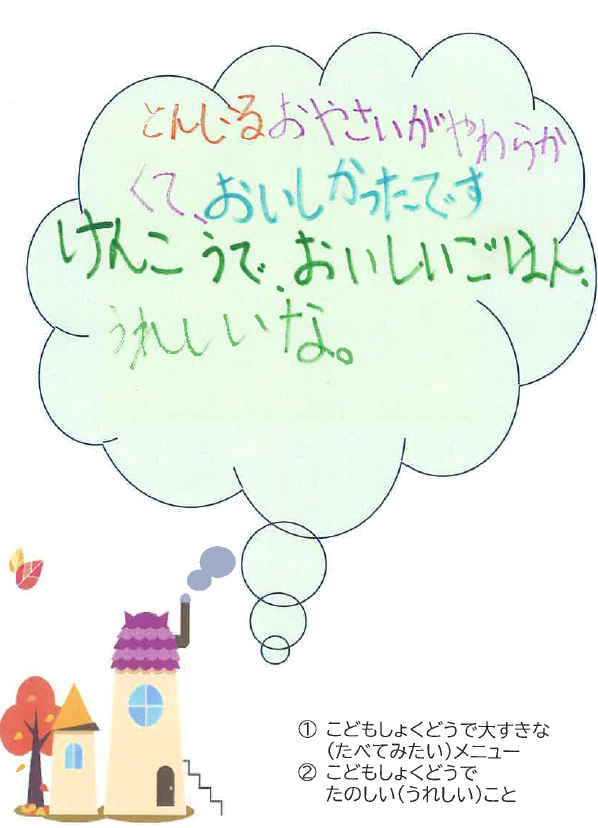 とんじるおやさいがやわらか
くて、おいしかったです
けんこうで、おいしいごはん、
うれしいな。
① こどもしょくどうで大すきな
（たべてみたい）メニュー
② こどもしょくどうで
たのしい（うれしい）こと